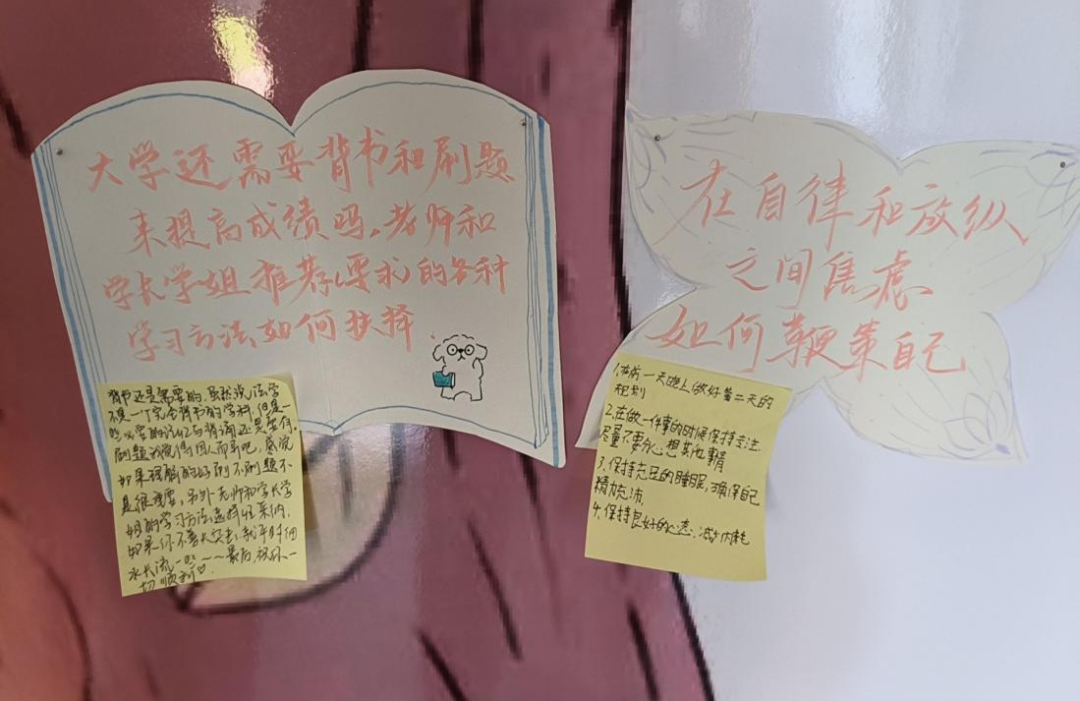 大学还需要背书和刷题
来提高成绩吗,老师和
学长学姐推荐(要求)的各种
学习方法如何抉择
背书还是需要的,虽然说法学
不是一门完全背书的学科,但是一
些必要的记忆与背诵还是要有。
刷题我觉得因人而异吧,感觉
如果理解的好刷不刷题不
是很重要,另外老师和学长学
姐的学习方法选择性采纳,
如果你不喜欢突击,就平时细
水长流一些~~最后,祝你一
切顺利♡
在自律和放纵
之间焦虑
如何鞭策自己
1.在前一天晚上做好第二天的
规划
2.在做一件事的时候保持专注
尽量不要分心想其他事情
3.保持充足的睡眠,确保自己
精力充沛
4.保持良好的心态,减少内耗